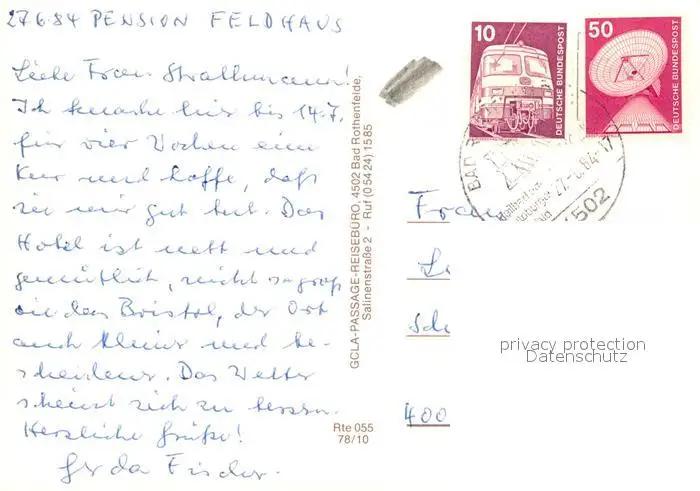 27.6.84 PENSION FELDHAUS
Liebe Frau Strathmann!
Ich mache hier bis 14.7.
für vier Wochen eine
Kur und hoffe, daß
sie mir gut tut. Das
Hotel ist nett und
gemütlich, nicht so groß
wie das Bristol, der Ort
auch kleiner und be-
scheidener. Das Wetter
scheint sich zu bessern.
Herzliche Grüße!
Gerda Fischer.
GCLA-PASSAGE-REISEBÜRO, 4502 Bad Rothenfelde,
Salinenstraße 2 - Ruf (05424) 1585
Rte 055
78/10
10
DEUTSCHE BUNDESPOST
50
DEUTSCHE BUNDESPOST
BAD
27.-6.84-17
4502
Frau
400
privacy protection
Datenschutz